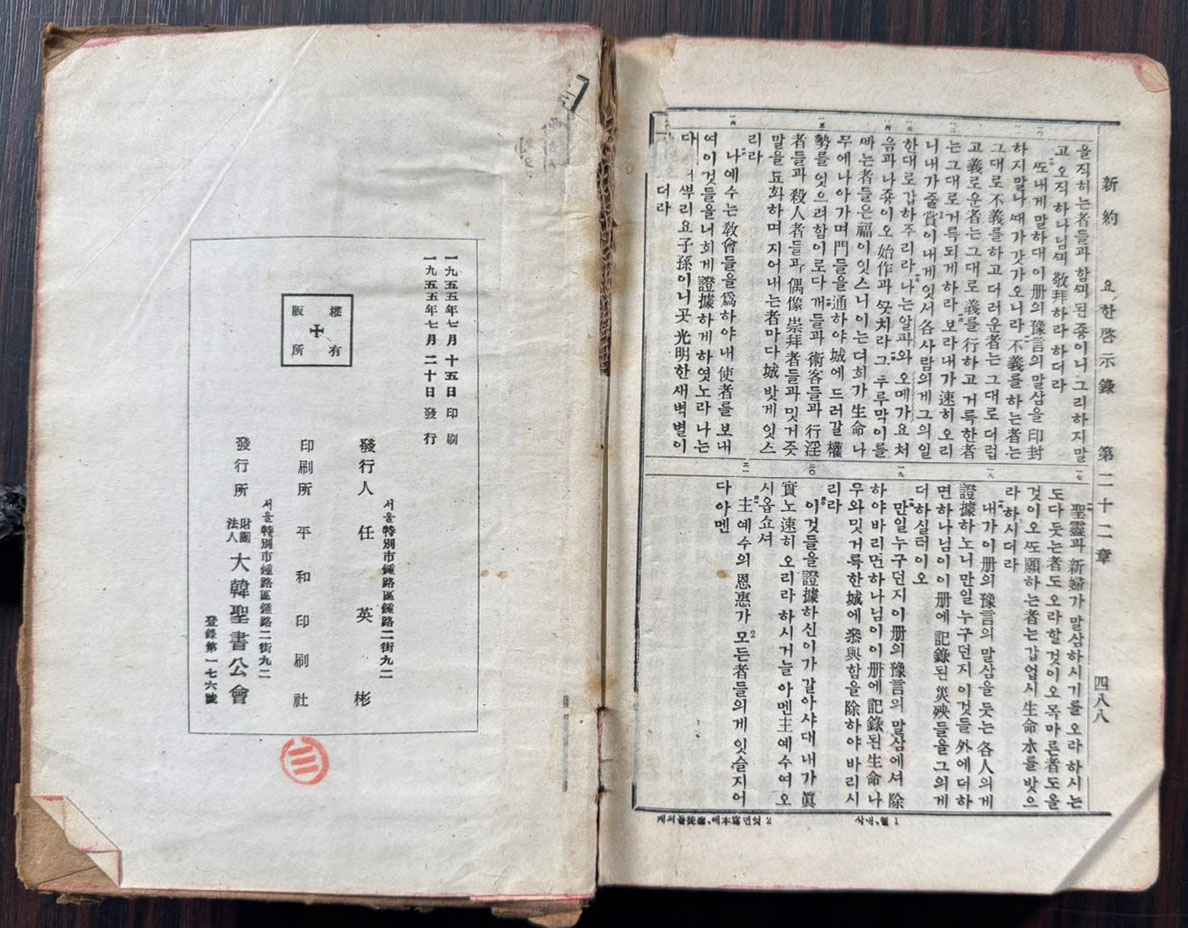 新約 요한啓示錄 第二十二章 四八八
을직히는者들과함ᄭᅴ된죵이니그리하지말
고 오직하나님ᄭᅴ 敬拜하라하더라
ᄯᅩ내게말하대이册의豫言의말삼을印封
하지말나ᄯᅢ가갓가오니라不義를하는者는
그대로不義를하고더러운者는그대로더럽
고義로운者는그대로義를行하고거륵한者
는그대로거륵되게하라 보라내가速히오리
니내가줄賞이내게잇서各사람의게그의일
한대로갑하주리라나는알파와오메가요처
음과나죵이오始作과ᄭᅳᆺ치라그루루막이를
ᄲᅡ는者들은福이잇스니이는뎌희가生命나
무에나아가며門들을通하야城에드러갈權
勢를엇으려함이로다개들과術客들과行淫
者들과殺人者들과偶像崇拜者들과밋거즛
말을됴화하며지어내는者마다城밧게잇스
리라
나예수는敎會들을爲하야내使者를보내
여이것들을너희게證據하게하엿노라나는
ᄲᅮ리요子孫이니곳光明한새벽별이
더라
聖靈과新婦가말삼하시기를오라하시는
도다듯는者도오라할것이오목마른者도올
것이오ᄯᅩ願하는者는갑업시生命水를밧으
라하시더라
내가이册의豫言의말삼을듯는各人의게
證據하노니만일누구던지이것들外에더하
면하나님이이册에記錄된災殃들을그의게
더하실터이오
만일누구던지이册의豫言의말삼에셔除
하야바리면하나님이이册에記錄된生命나
무와밋거륵한城에參與함을除하야바리시
리라
이것들을證據하신이가갈아사대내가眞
實노速히오리라하시거늘아멘主예수여오
시옵쇼셔
主예수의恩惠가모든者들의게잇슬지어
다아멘
一九五五年七月十五日 印刷
一九五五年七月二十日 發行
版權所有
서울特別市鍾路區鍾路二街九一
發行人 任英彬
印刷所 平和印刷社
서울特別市鍾路區鍾路二街九二
發行所 財團法人 大韓聖書公會
登錄第一七六號